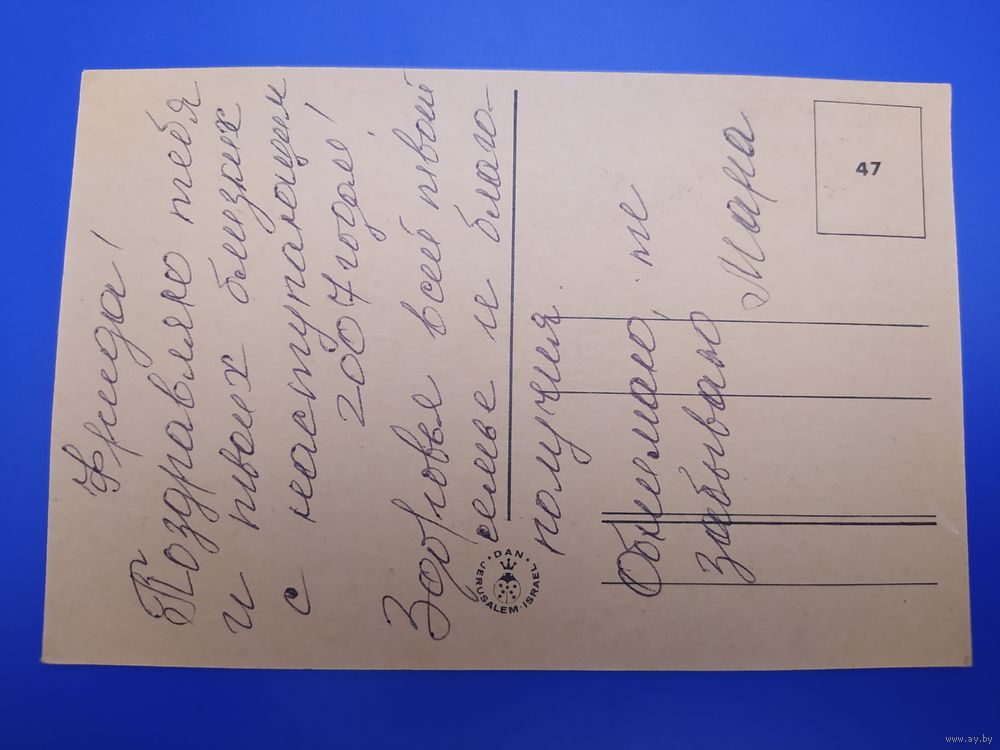 Фрида!
Поздравляю тебя
и твоих близких
с наступающим
2007 годом!
Здоровья всей твоей
семье и благо-
получия
Обнимаю, не
забываю
Мара
47
DAN · JERUSALEM · ISRAEL
www.ay.by